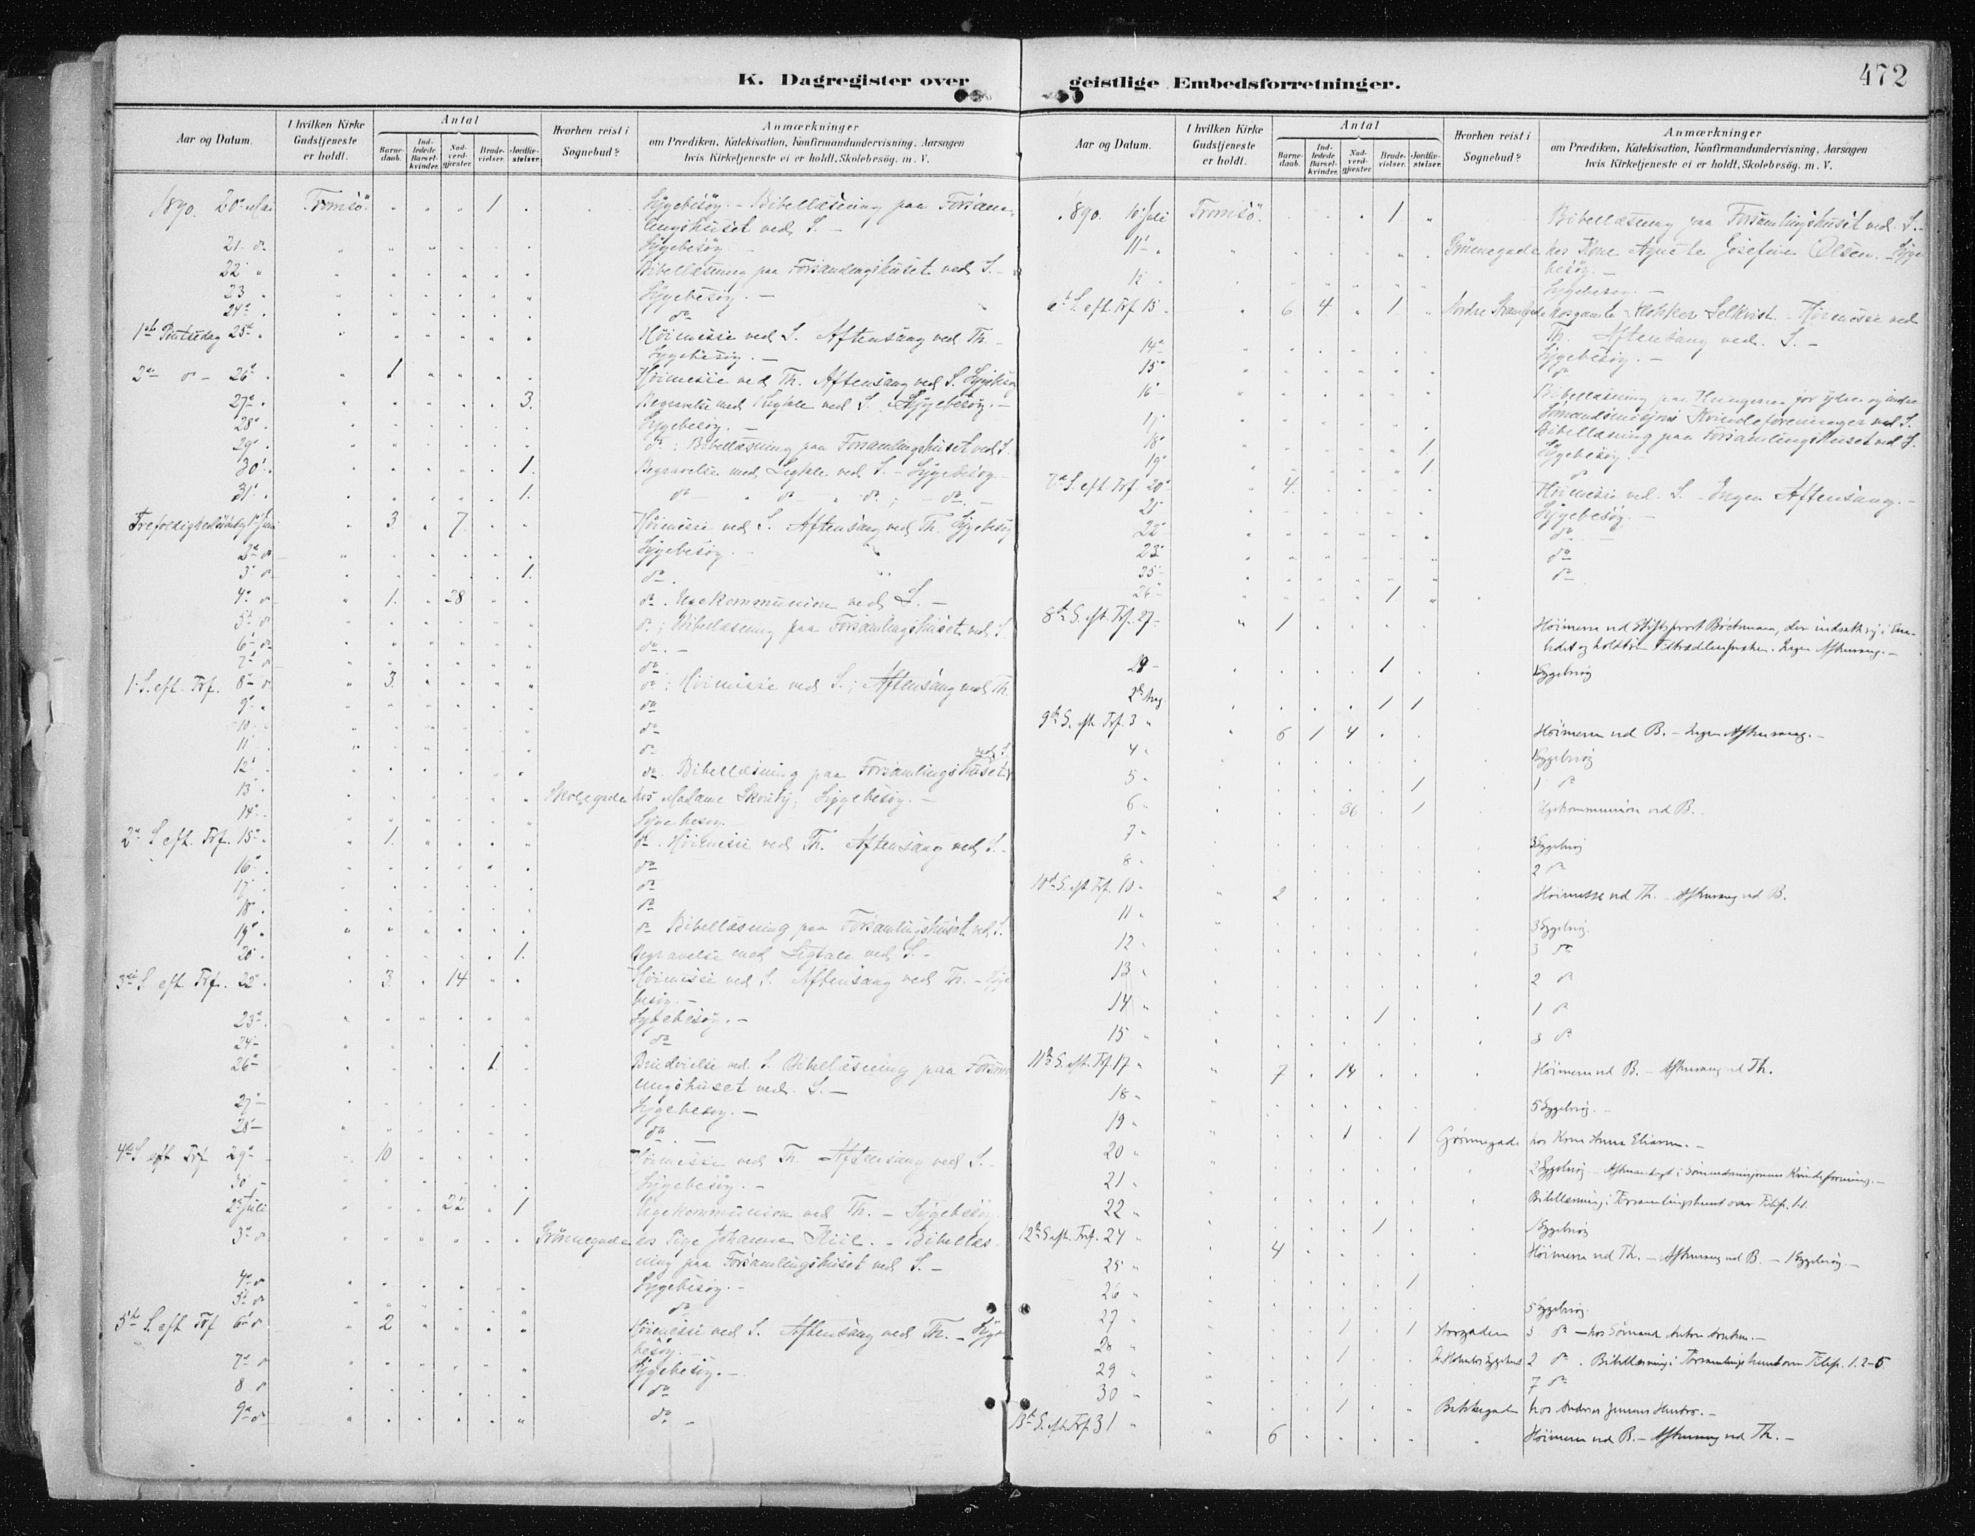 472
K. Dagregister over geistlige Embedsforretninger.
Aar og Datum. I hvilken Kirke Gudstjeneste er holdt. Antal Barnedaab. Indledede Barselkvinder. Nadverdgjæster. Brudevielser. Jordfæstelser. Hvorhen reist i Sognebud? Anmærkninger om Prædiken, Katekisation, Konfirmandundervisning, Aarsagen hvis Kirketjeneste ei er holdt, Skolebesøg. m. V.
1890. 20de Mai Tromsö. 1 Sygebesög. – Bibellæsning paa Forsam-
lingshuset ved S. –
21 do Sygebesög. –
22 Bibellæsning paa Forsamlingshuset ved S. –
23 Sygebesög. –
24 do
1ste Pintsedag 25 Höimesse ved S. Aftensang ved Th. –
Sygebesög. –
2den do 26 1 Höimesse ved Th. Aftensang ved S. Sygebesög
27 3. Begravelse med Ligtale ved S. Sygebesög. –
28 Sygebesög. –
29 do; Bibellæsning paa Forsamlingshuset ved S.
30 1. Begravelse med Ligtale ved S. – Sygebesög –
31 1. do – do – do; – do –
Trefoldighedssöndag 1 Juni 3 7 Höimesse ved S. Aftensang ved Th. Sygebesög
2 do Sygebesög. –
3 do 1. do.
4 do 1. 28 do. Ugekommunion ved S. –
5 do do; Bibellæsning paa Forsamlingshuset ved S.
6 do do. –
7 do do
1. S. eft. Trf. 8 do 3 do; Höimesse ved S.; Aftensang ved Th.
9 do
10 do
11 do
12 do. Bibellæsning paa Forsamlingshuset ved S.
13 Skolegade hos Madame; Sygebesög. –
14 Sygebesög.
2 S. eft. Trf. 15 1. do. Höimesse ved Th. Aftensang ved S. –
16 do
17 do
18 do
19 do Bibellæsning paa Forsamlingshuset ved S.
20 1. Begravelse med Ligtale ved S. –
3 S. eft Trf. 22 3. 14 Höimesse ved S. Aftensang ved Th. – Syge-
besög. –
23 Sygebesög. –
24 do
26 1. Brudvielse ved S. Bibellæsning paa Forsam-
lingshuset ved S. –
27 Sygebesög. –
28 do. –
4 S. eft Trf 29 10 Höimesse ved Th. Aftensang ved S. –
30 Sygebesög. –
2 Juli 22 1 Ugekommunion ved Th. – Sygebesög
3 do Grönnegade hos Pige Johanna Kiil. – Bibellæs-
ning paa Forsamlingshuset ved S. –
4 do Sygebesög. –
5 do do
5te S. eft Trf 6 do 2 Höimesse ved S. Aftensang ved Th. – Syge-
besög. –
7 do Sygebesög. –
8 do do
9 do do –
Aar og Datum. I hvilken Kirke Gudstjeneste er holdt. Antal Barnedaab. Indledede Barselkvinder. Nadverdgjæster. Brudevielser. Jordfæstelser. Hvorhen reist i Sognebud? Anmærkninger om Prædiken, Katekisation, Konfirmandundervisning, Aarsagen hvis Kirketjeneste ei er holdt, Skolebesøg. m. V.
1890. 10 Juli Tromsö. 1 Bibellæsning paa Forsamlingshuset ved S. –
11 Grönnegade hos Kone Agnete Josefine Olsen. – Syge-
besög. –
12 Sygebesög. –
6te S. eft Trf 13 6 4 1 Nordre Strandgade hos gamle Klokker. – Höimesse ved
Th. Aftensang ved S. –
14 Sygebesög. –
15 do
16 Bibellæsning paa
17 Bibellæsning paa Forsamlingshuset ved S.
18 1 Sygebesög. –
19 1 do
7de S. eft Trf. 20 4. Höimesse ved S. – Ingen Aftensang. –
21 Sygebesög. –
22 do –
23 do
25 do
26 1
8de S. eft. Trf. 27 1 Höimesse ved Stiftsprovst Böckman, der indsatte sig i Em-
bedet og holdt sin Tiltrædelsesprædiken. Ingen Aftensang. –
29 1 1 Sygebesög
2den Aug 1 1
9de S. eft. Trf. 3 6 1 4 Höimesse ved B. – Ingen Aftensang. –
4 1 Sygebesög
5 1 1 do
6 36 1 Ugekommunion ved B.
7 3 Sygebesög
8 2 do
10de S. eft Trf. 10 2 Höimesse ved Th. – Aftensang ved B.
11 3 Sygebesög.
12 3 do
13 2 do
14 1 1 do
15 3 do
11te S. eft. Trf. 17 7 14 Höimesse ved B. – Aftensang ved Th.
18 5 Sygebesög. –
19 1 1 Grönnegade hos Kone Anna Eliasen. –
20 2 Sygebesög – i Sömandsmissjonens Kvindeforening. –
21 Bibellæsning i Forsamlingshuset over Filip. 1.
22 1 1 Sygebesög
12te S. eft. Trf. 24 4 Höimesse ved Th. – Aftensang ved B. – 1 Sygebesög. –
25 1
26 5 Sygebesög.
27 1 1 3 do – hos Sömand. –
28 1 2 do. Bibellæsning i Forsamlingshuset over Filip. 1. 2–5
29 7 do
30 1 Bakkegaden hos Andreas. –
13de S. eft. Trf. 31 6 Höimesse ved B. – Aftensang ved Th. –